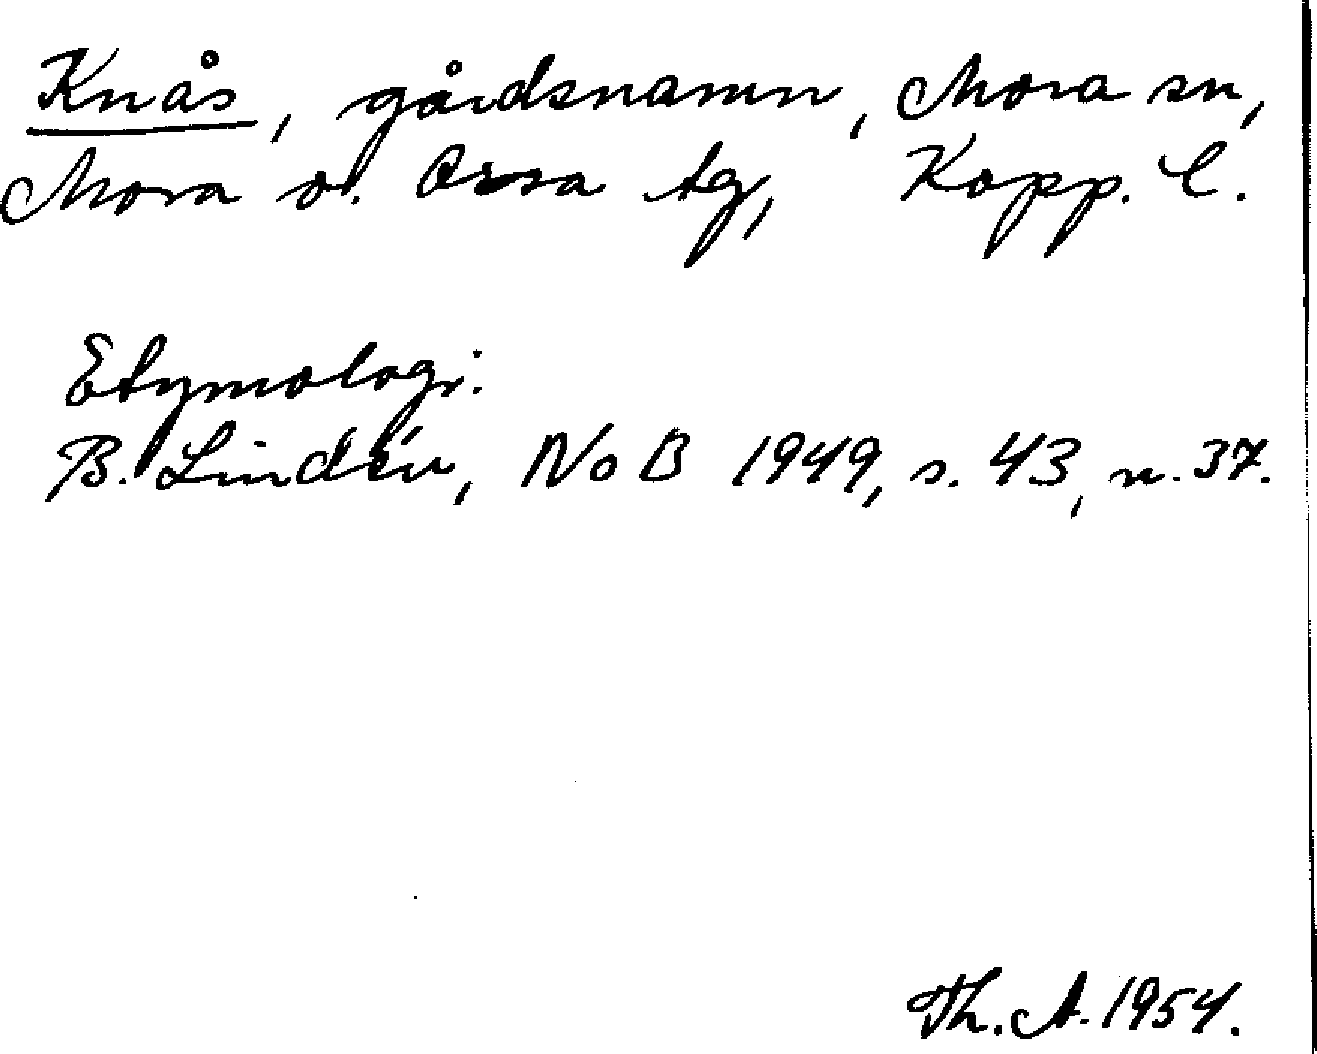 Knås, gårdsnamn, Mora sn,
Mora o. Orsa tg, Kopp. l.
Etymologi:
B. Lindén, NoB 1949, s. 43, n. 37.
Th. A. 1954.